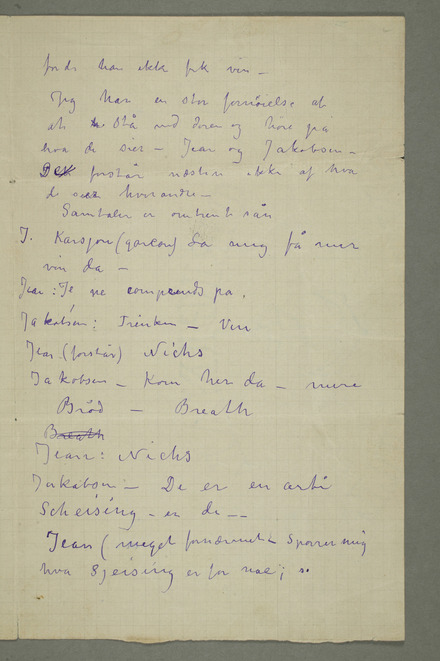 fordi han ikke fik vin –
Jeg har en stor fornøielse af
at stå ved døren og høre på
hva de sier – Jean og Jakobsen –
De forstår næsten ikke af hva
de sier hverandre –
Samtalen er omtrent sån
J. Karsjon (garcon) La mig få mer
vin da –
Jean: Je ne comprends pa.
Jakobsen: Trinken – Vin
Jean (forstår) Nichs
Jakobsen – Kom her da – mere
Brød – Breath
Breath
Jean: Nichs
Jakobsen – De er en arti
Scheising – en de ––
Jean (meget fornærmet – Spørrer mig
hva Sjeising er for noe;